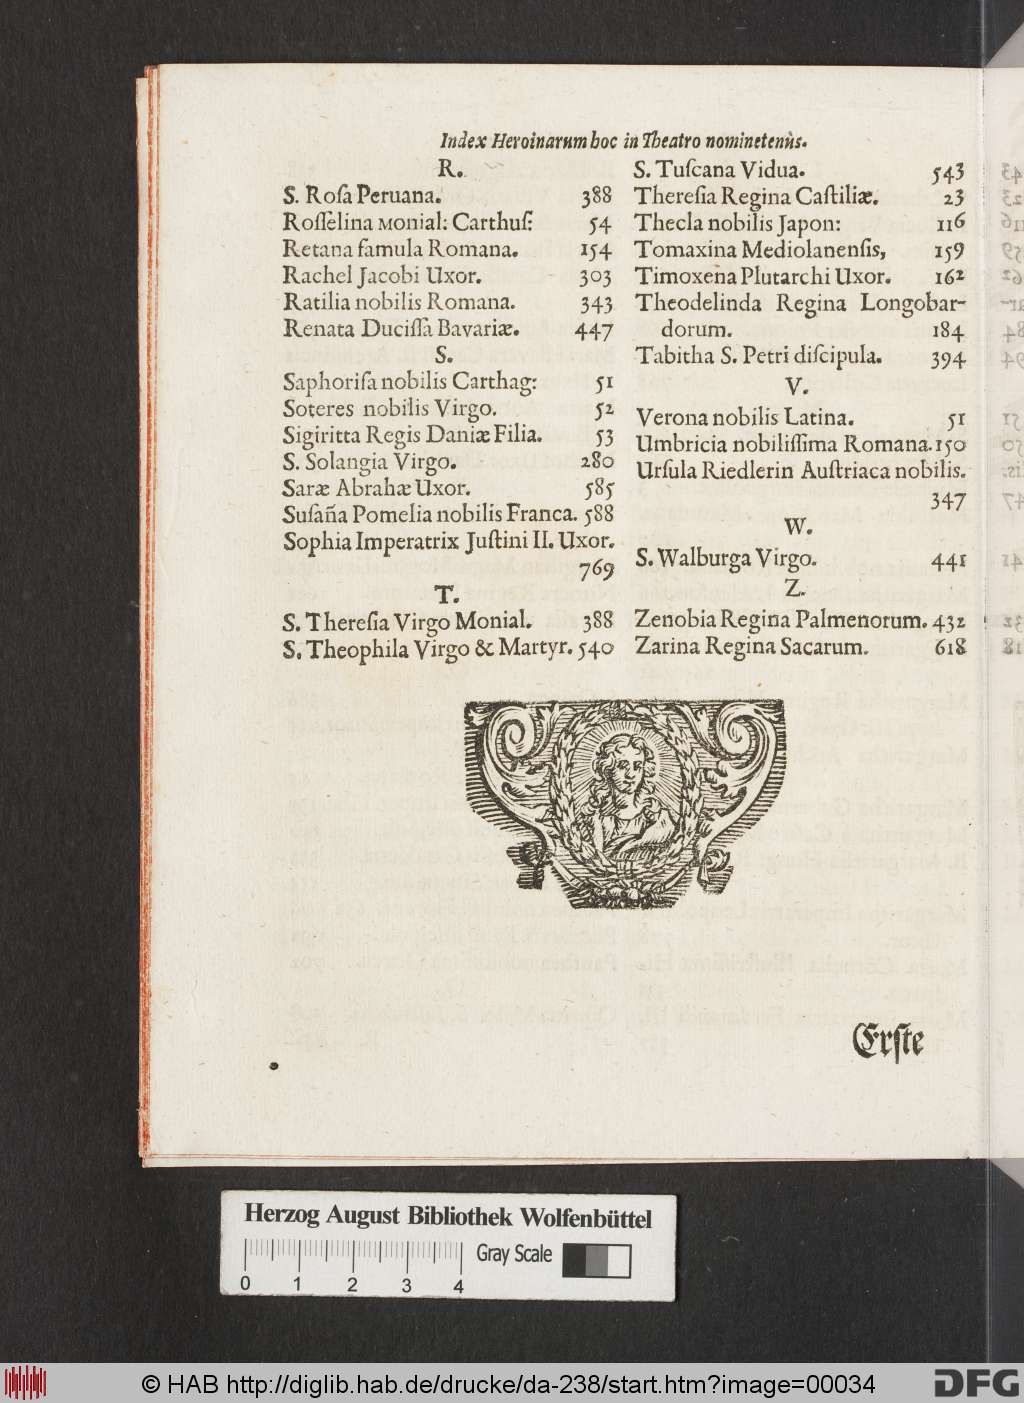 Index Heroinarum hoc in Theatro nominetenùs.
R.
S. Roſa Peruana. 388
Roſſelina Monial: Carthuſ: 54
Retana famula Romana. 154
Rachel Jacobi Uxor. 303
Ratilia nobilis Romana. 343
Renata Duciſſa Bavariæ. 447
S.
Saphoriſa nobilis Carthag: 51
Soteres nobilis Virgo. 52
Sigiritta Regis Daniæ Filia. 53
S. Solangia Virgo. 280
Saræ Abrahæ Uxor. 585
Suſaña Pomelia nobilis Franca. 588
Sophia Imperatrix Juſtini II. Uxor.
769
T.
S. Thereſia Virgo Monial. 388
S. Theophila Virgo & Martyr. 540
S. Tuſcana Vidua. 543
Thereſia Regina Caſtiliæ. 23
Thecla nobilis Japon: 116
Tomaxina Mediolanenſis, 159
Timoxena Plutarchi Uxor. 162
Theodelinda Regina Longobar-
dorum. 184
Tabitha S. Petri diſcipula. 394
V.
Verona nobilis Latina. 51
Umbricia nobiliſſima Romana. 150
Urſula Riedlerin Auſtriaca nobilis.
347
W.
S. Walburga Virgo. 441
Z.
Zenobia Regina Palmenorum. 432
Zarina Regina Sacarum. 618
Erſte
Herzog August Bibliothek Wolfenbüttel
0 1 2 3 4
Gray Scale
© HAB http://diglib.hab.de/drucke/da-238/start.htm?image=00034
DFG